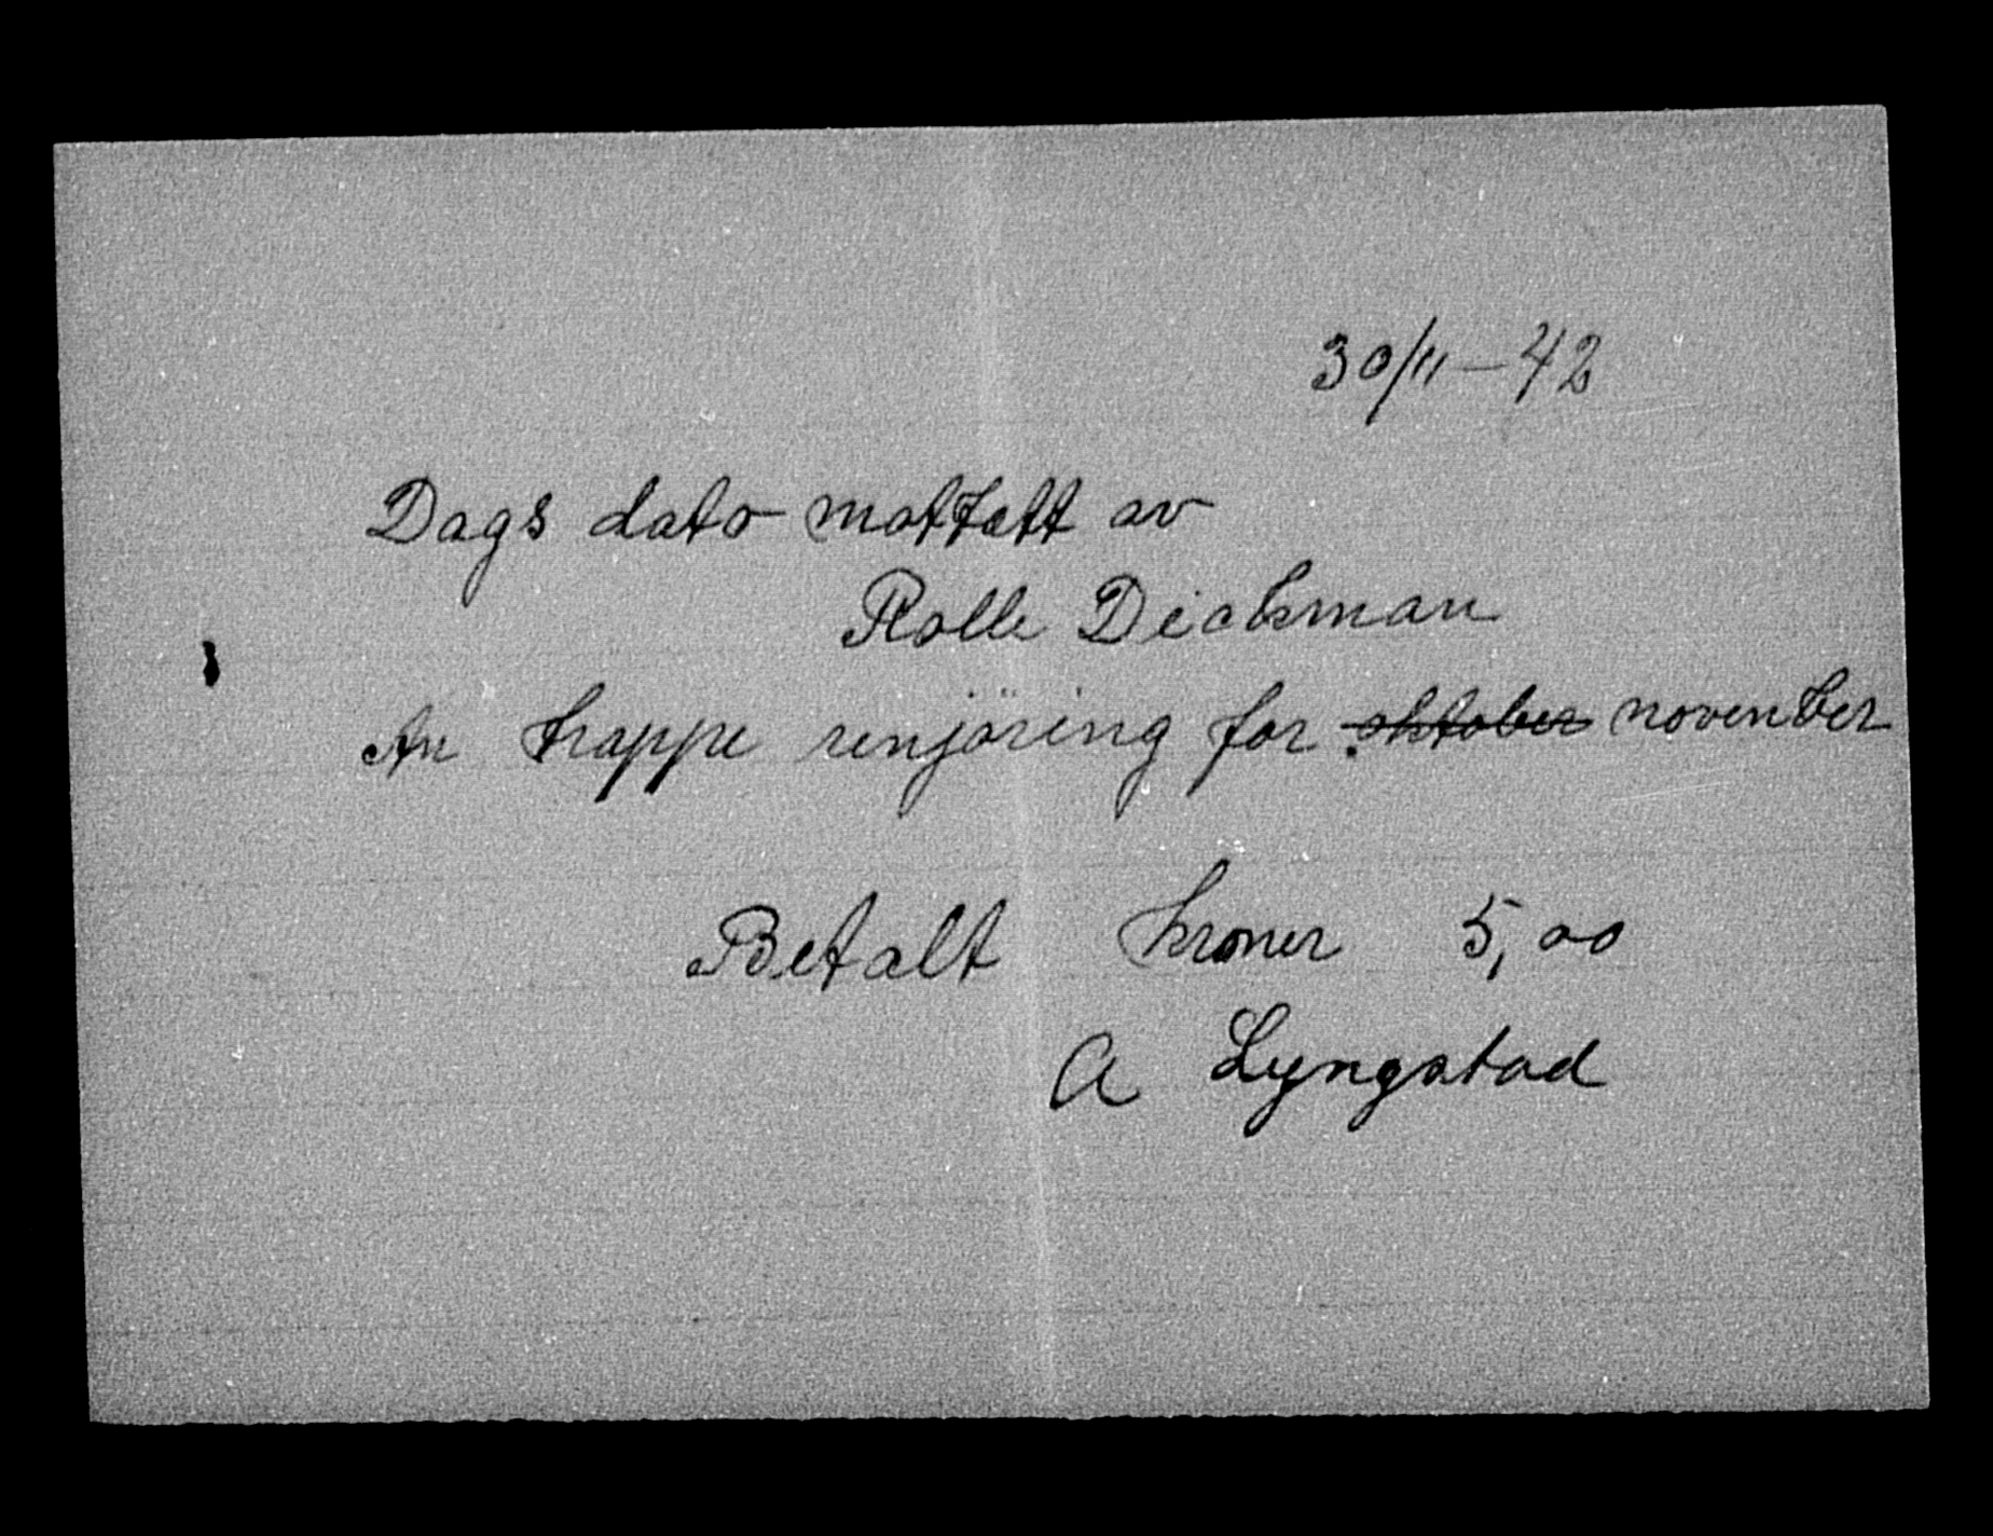 30/11 – 42
Dags dato mottatt av
Rolle Dickman
An trappe renjöring for oktober november
Betalt kroner 5,00
A Lyngstad